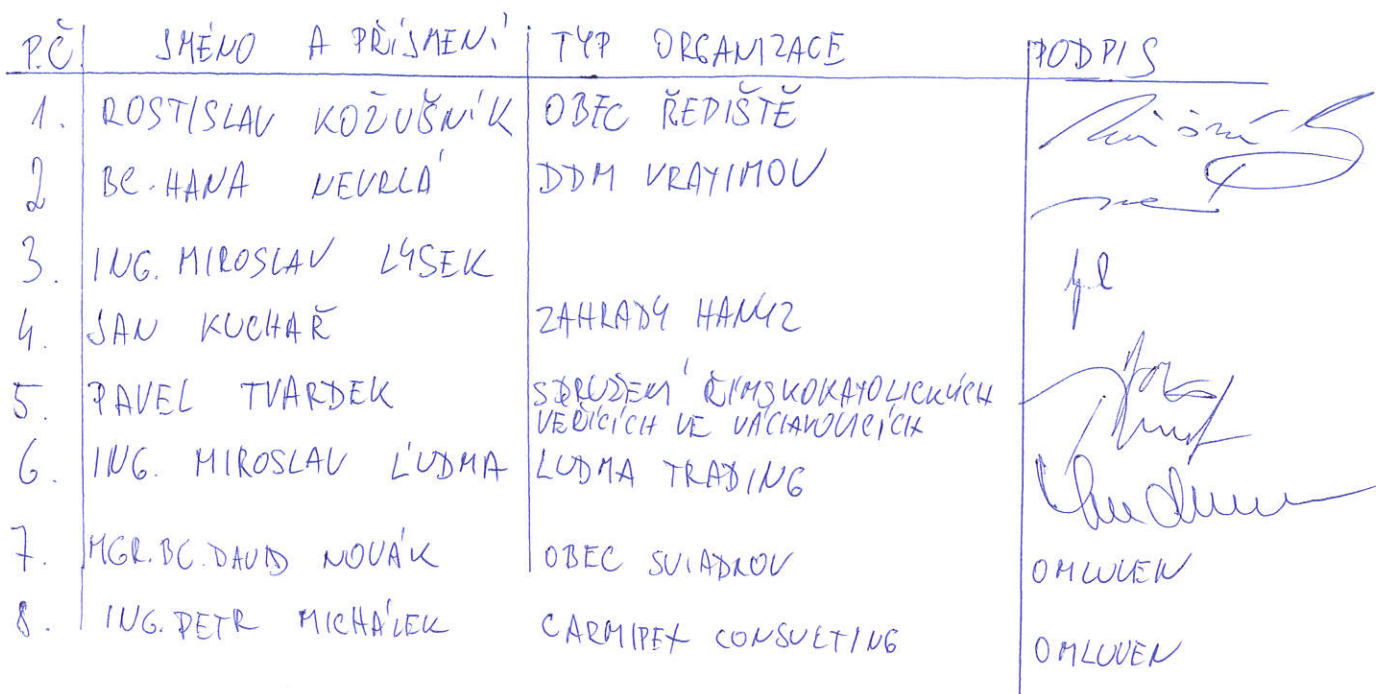 P.Č. JMÉNO A PŘÍJMENÍ TYP ORGANIZACE PODPIS
1. ROSTISLAV KOŽUŠNÍK OBEC ŘEPIŠTĚ
2 BC. HANA NEVRLÁ DDM VRATIMOV
3. ING. MIROSLAV LYSEK
4. JAN KUCHAŘ ZAHRADY HANÝZ
5. PAVEL TVARDEK SDRUŽENÍ ŘÍMSKOKATOLICKÝCH
VEŘÍCÍCH VE VÁCLAVOVICÍCH
6. ING. MIROSLAV ĽUDMA LUDMA TRADING
7. MGR. BC. DAVID NOVÁK OBEC SVIADNOV OMLUVEN
8. ING. PETR MICHÁLEK CARMIPEX CONSULTING OMLUVEN